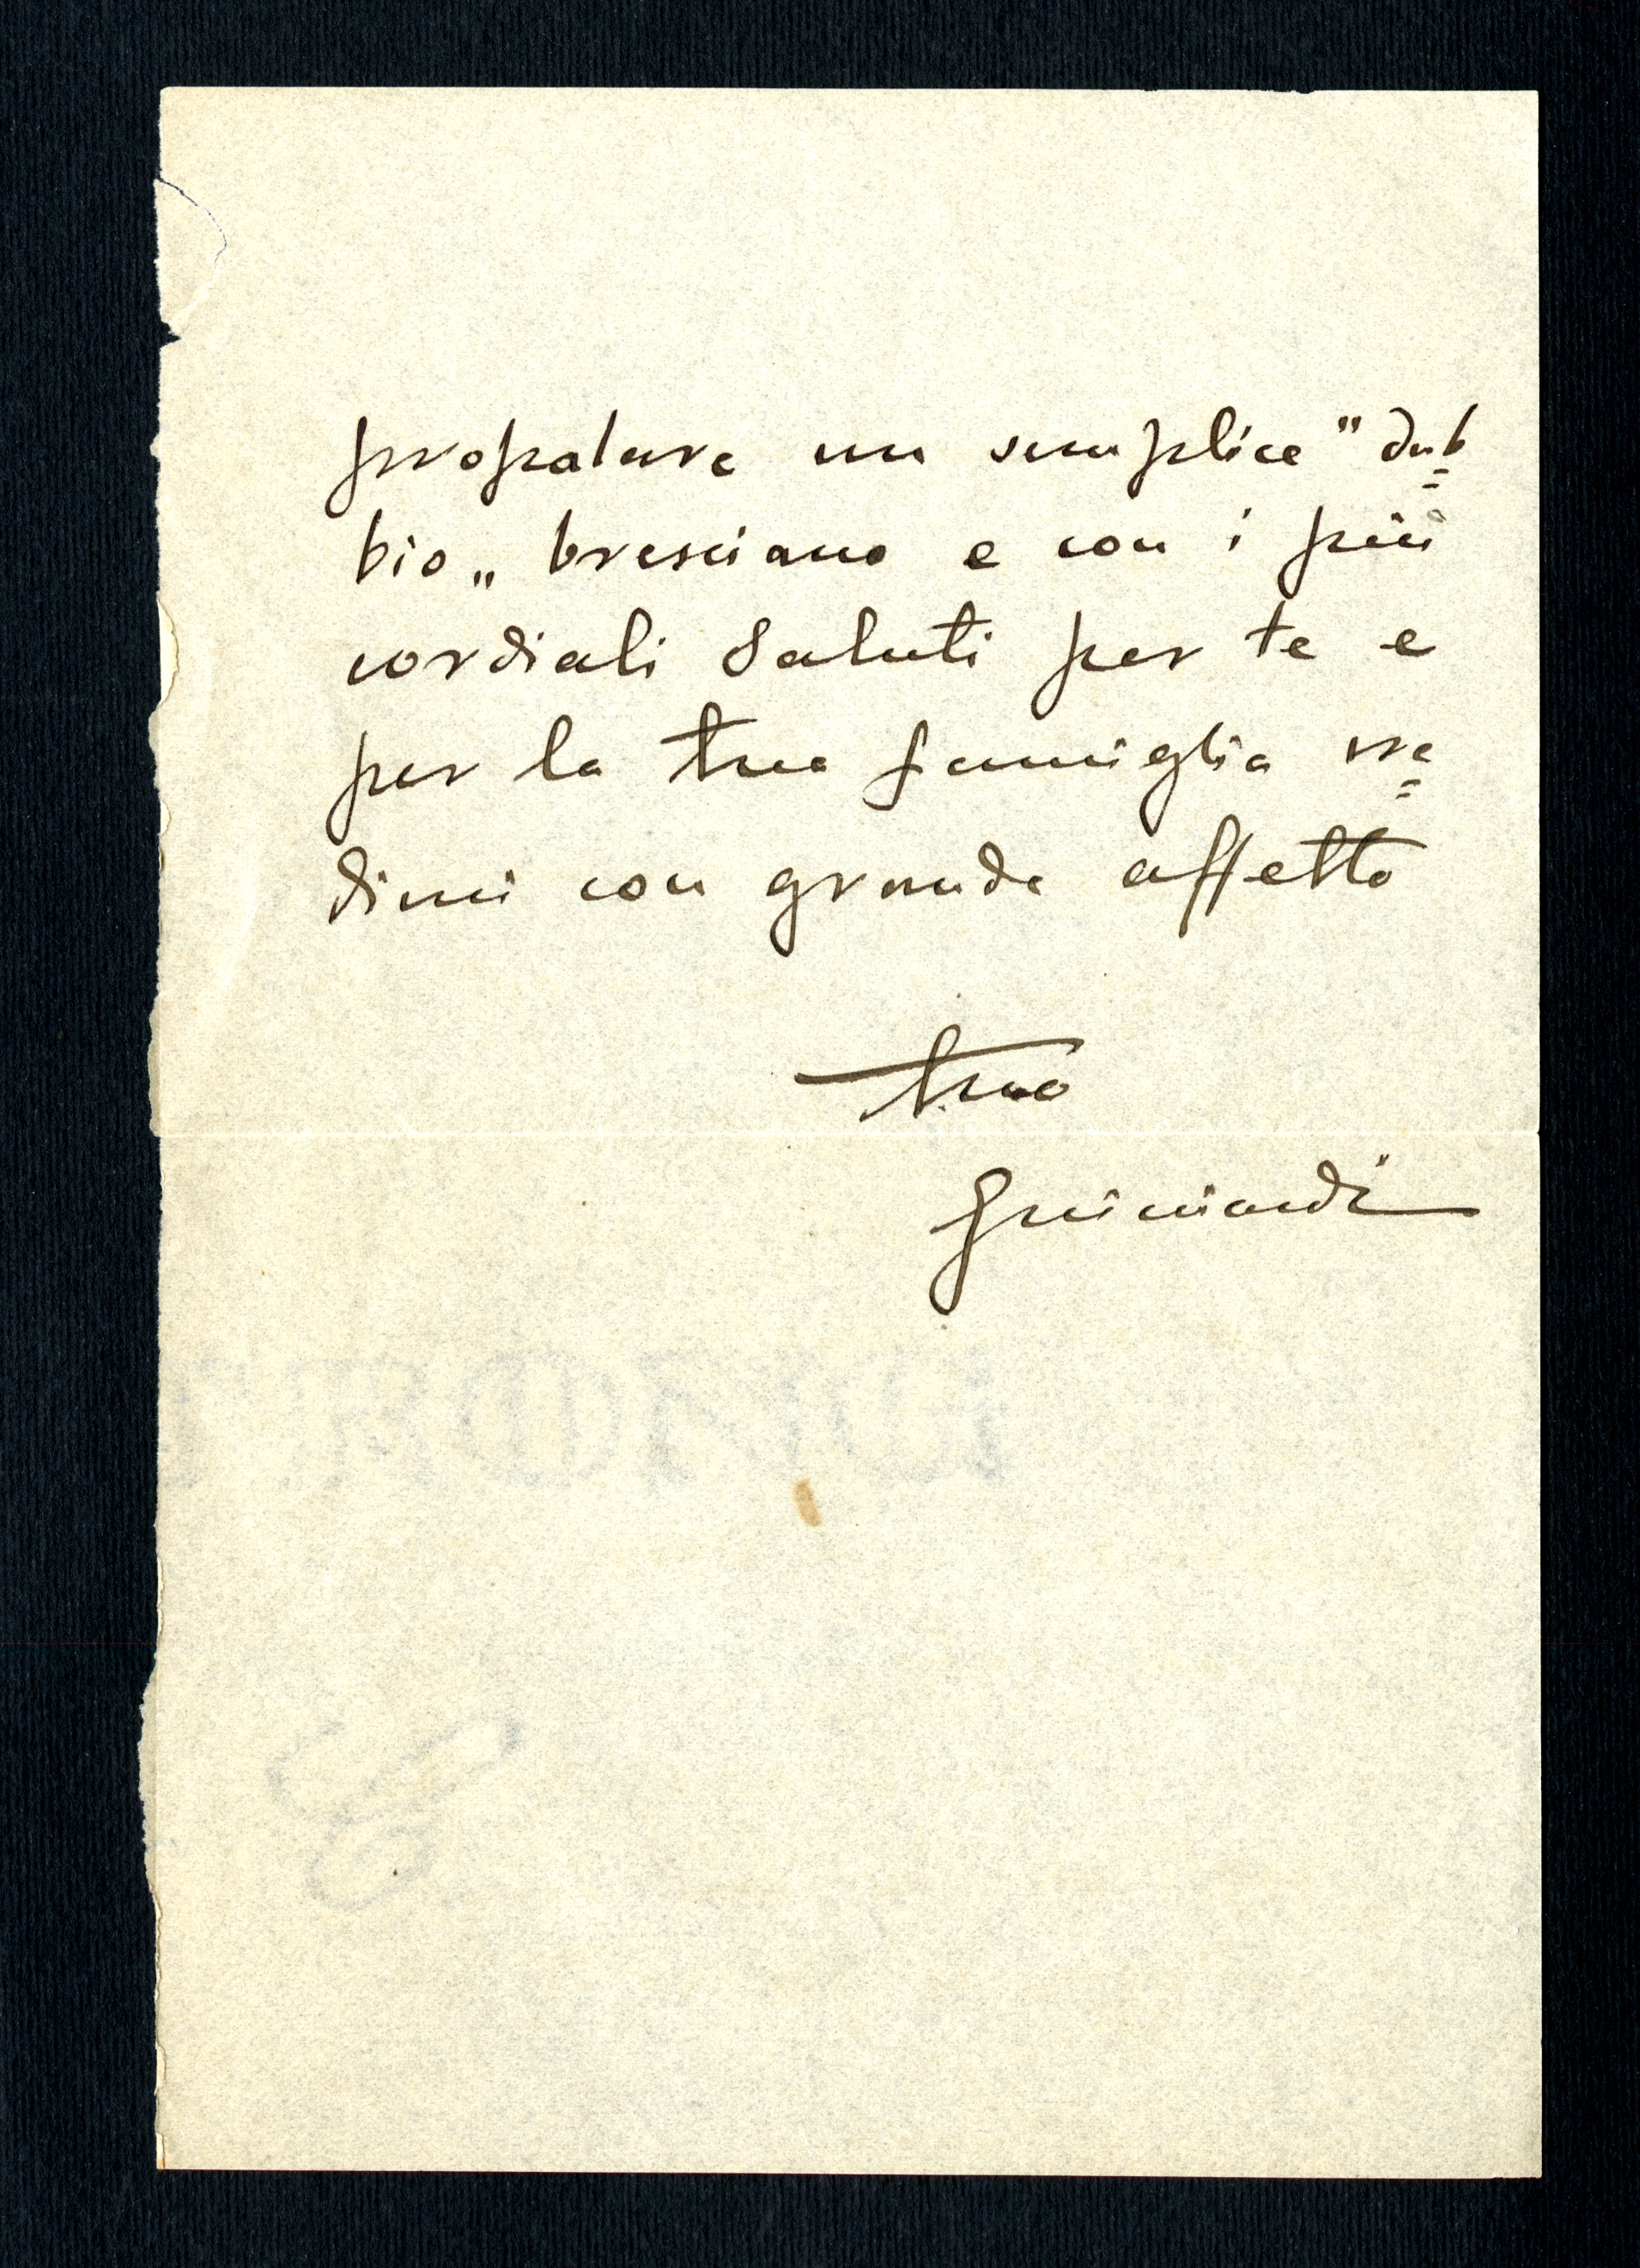 propalare un semplice "dub=
bio„ bresciano e con i più
cordiali saluti per te e
per la tua famiglia cre=
dimi con grande affetto
tuo